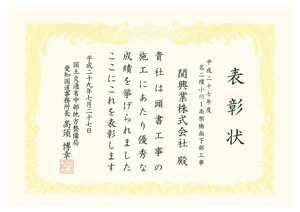 表彰状
平成二十七年度
名二環小川1高架橋南下部工事
関興業株式会社 殿
貴社は頭書工事の
施工にあたり優秀な
成績を挙げられました
ここにこれを表彰します
平成二十九年七月二十七日
国土交通省中部地方整備局
愛知国道事務所長 高須 博幸